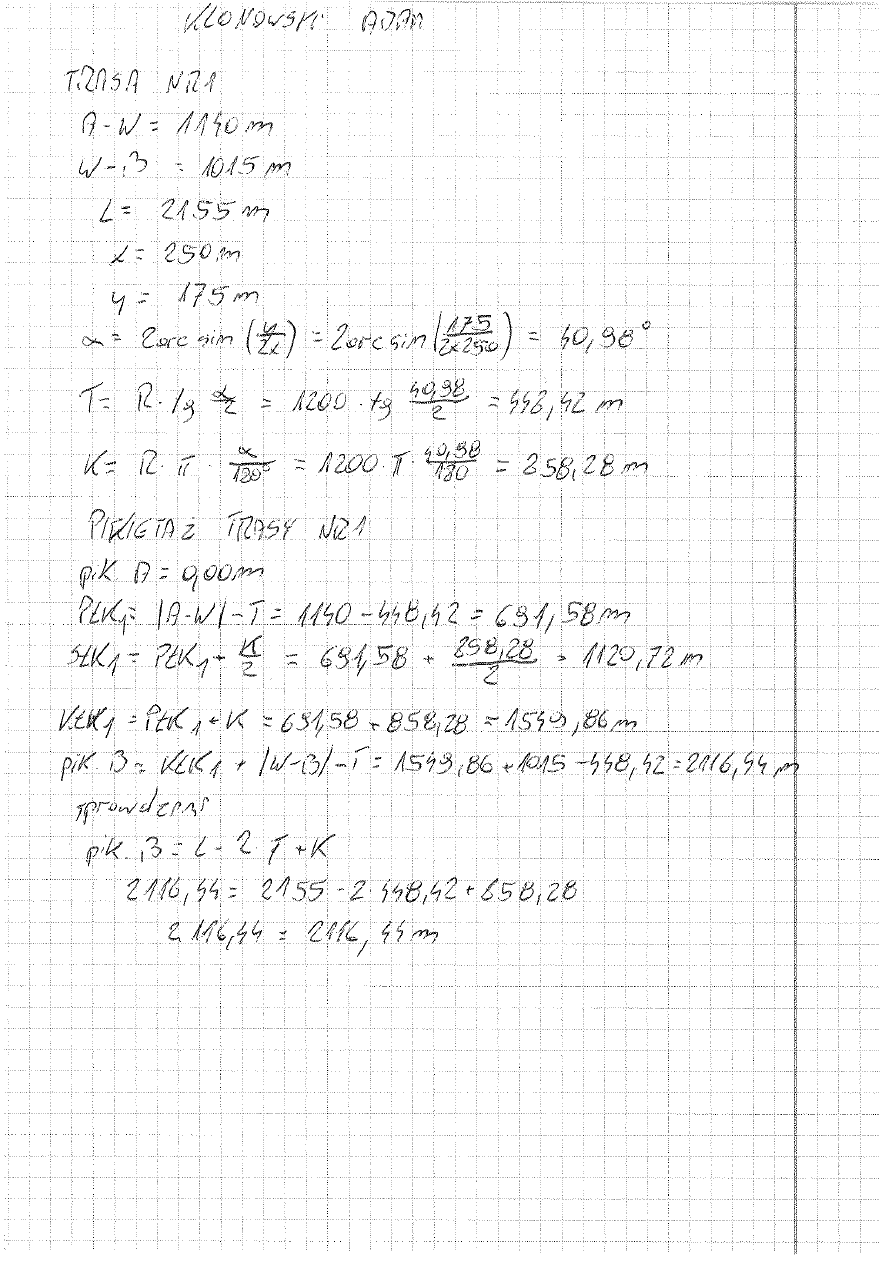 KLONOWSKI ADAM
TRASA NR1
A-W = 1140 m
W-B = 1015 m
L = 2155 m
x = 250 m
y = 175 m
α = 2arc sin (y/2x) = 2arc sin (175/2x250) = 40,98°
T = R · tg α/2 = 1200 · tg 40,98/2 = 448,42 m
K = R · π · α/180° = 1200 · π · 40,98/180 = 858,28 m
PIKIETAŻ TRASY NR1
pik A = 0,00m
PŁK1 = |A-W| - T = 1140 - 448,42 = 691,58 m
SŁK1 = PŁK1 + K/2 = 691,58 + 858,28/2 = 1120,72 m
KŁK1 = PŁK1 + K = 691,58 + 858,28 = 1549,86 m
pik B = KŁK1 + |W-B| - T = 1549,86 + 1015 - 448,42 = 2116,44 m
pik B = L - 2 T + K
2116,44 = 2155 - 2 · 448,42 + 858,28
2116,44 = 2116,44 m